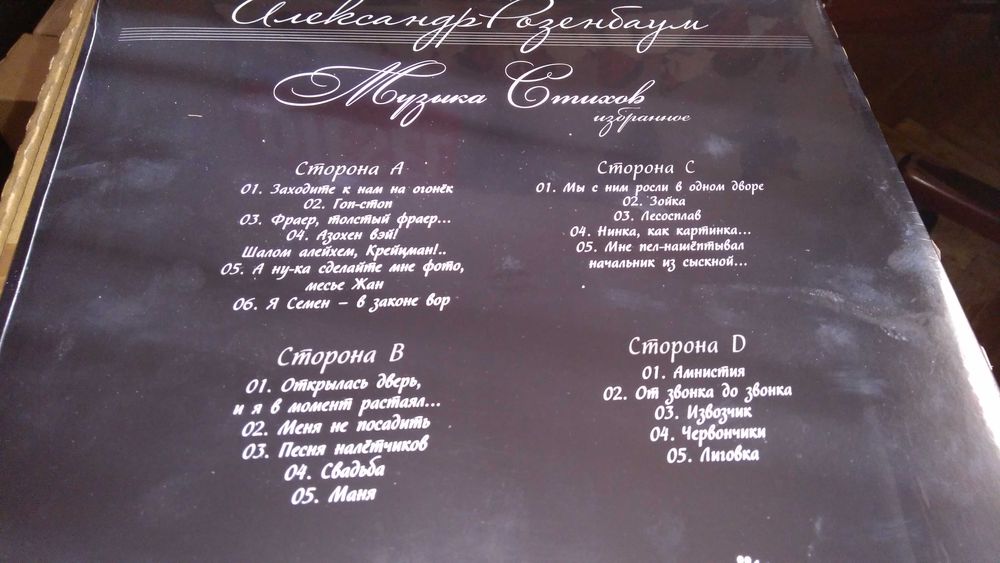 Александр Розенбаум
Музыка Стихов
избранное
Сторона А
01. Заходите к нам на огонёк
02. Гоп-стоп
03. Фраер, толстый фраер...
04. Азохен вэй!
Шалом алейхем, Крейцман!..
05. А ну-ка сделайте мне фото,
месье Жан
06. Я Семен – в законе вор
Сторона В
01. Открылась дверь,
и я в момент растаял...
02. Меня не посадить
03. Песня налётчиков
04. Свадьба
05. Маня
Сторона С
01. Мы с ним росли в одном дворе
02. Зойка
03. Лесосплав
04. Нинка, как картинка...
05. Мне пел-нашёптывал
начальник из сыскной...
Сторона D
01. Амнистия
02. От звонка до звонка
03. Извозчик
04. Червончики
05. Лиговка